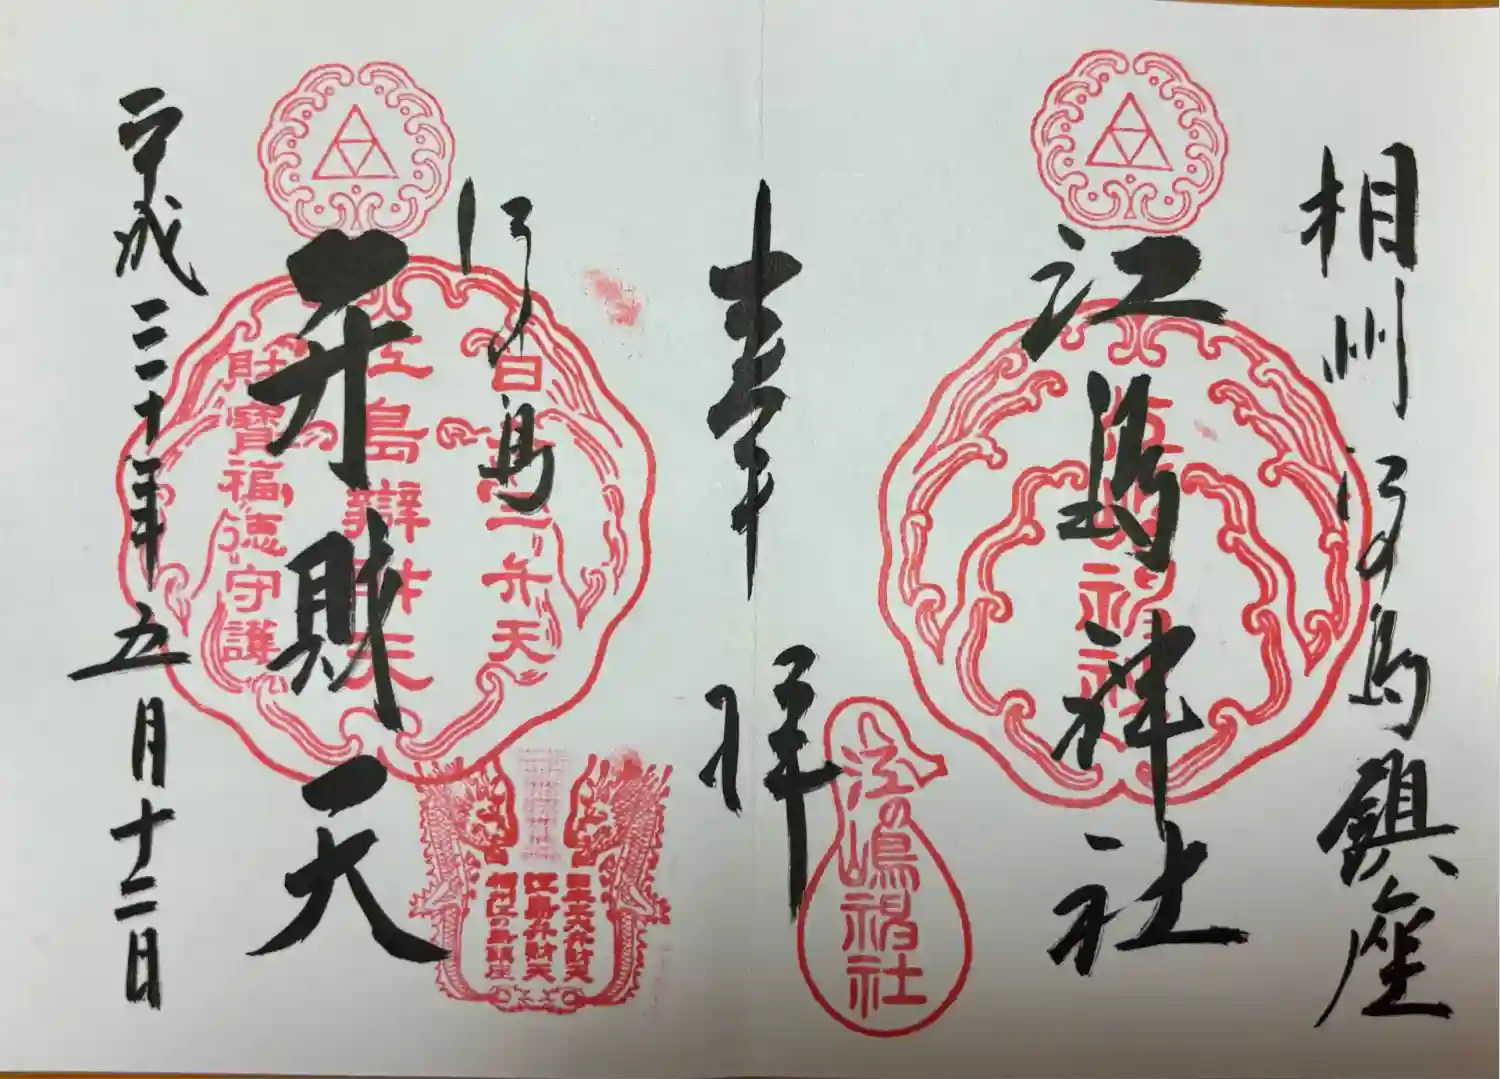 相州江の島鎮座
江島神社
奉拝
江の嶋神社
江の島
弁財天
江島辯財天
財寶福徳守護
日本三大弁財天
江島弁財天
相州江の島鎮座
平成三十年五月十二日